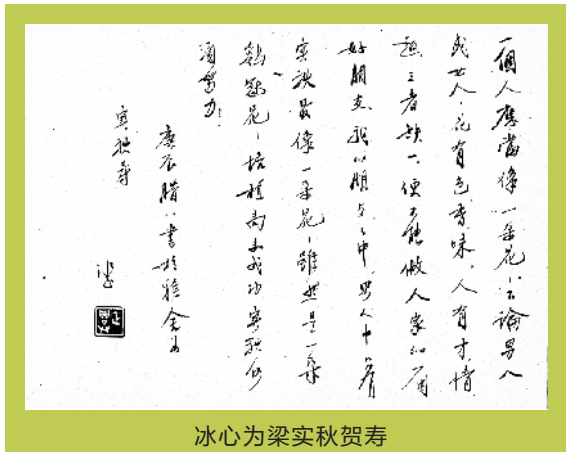 一個人應當像一朵花，不論男人
或女人。花有色香味，人有才情
趣，三者缺一，便不能做人家的一個
好朋友。我的朋友之中，男人中只有
實秋最像一朵花，雖然是一朵
鷄冠花，培植尚未成功，實秋仍
須努力！
庚辰腊八書於雅舍為
實秋壽
冰心为梁实秋贺寿